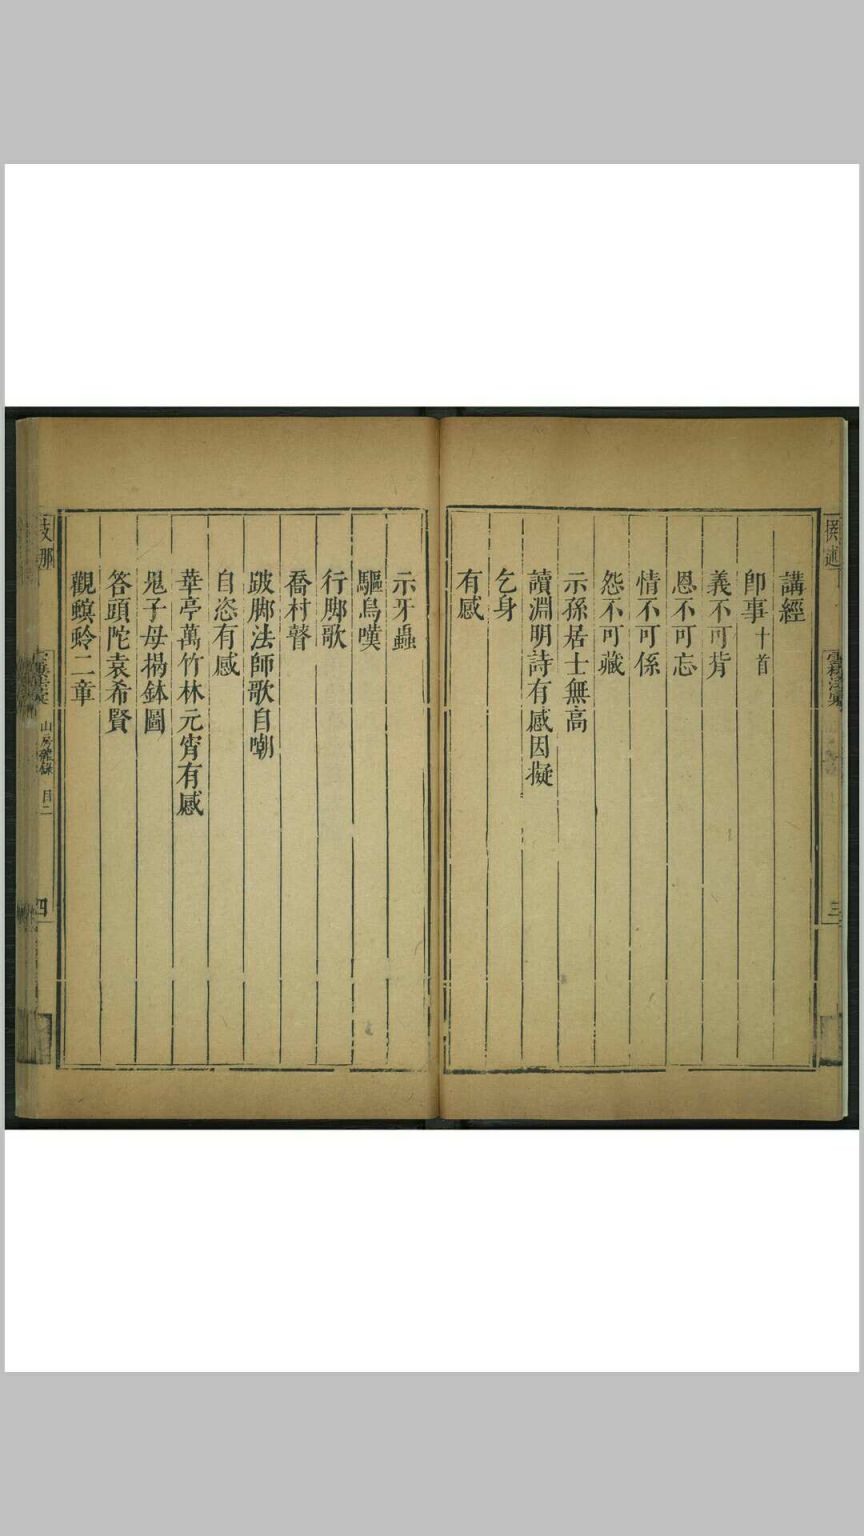 講經
卽事十首
義不可背
恩不可忘
情不可係
怨不可藏
示孫居士無高
讀淵明詩有感因擬
乞身
有感
示牙蟲
驅鳥嘆
行脚歌
喬村瞽
跛脚法師歌自嘲
自恣有感
華亭萬竹林元宵有感
鬼子母揭鉢圖
答頭陀袁希賢
觀螟蛉二章
山房雜錄 目二
四